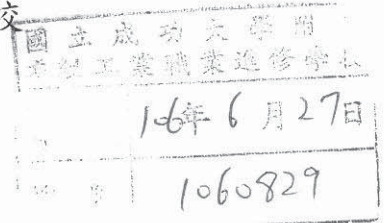 交
國立成功大學附
工業職業進修學
106年6月27日
1060829